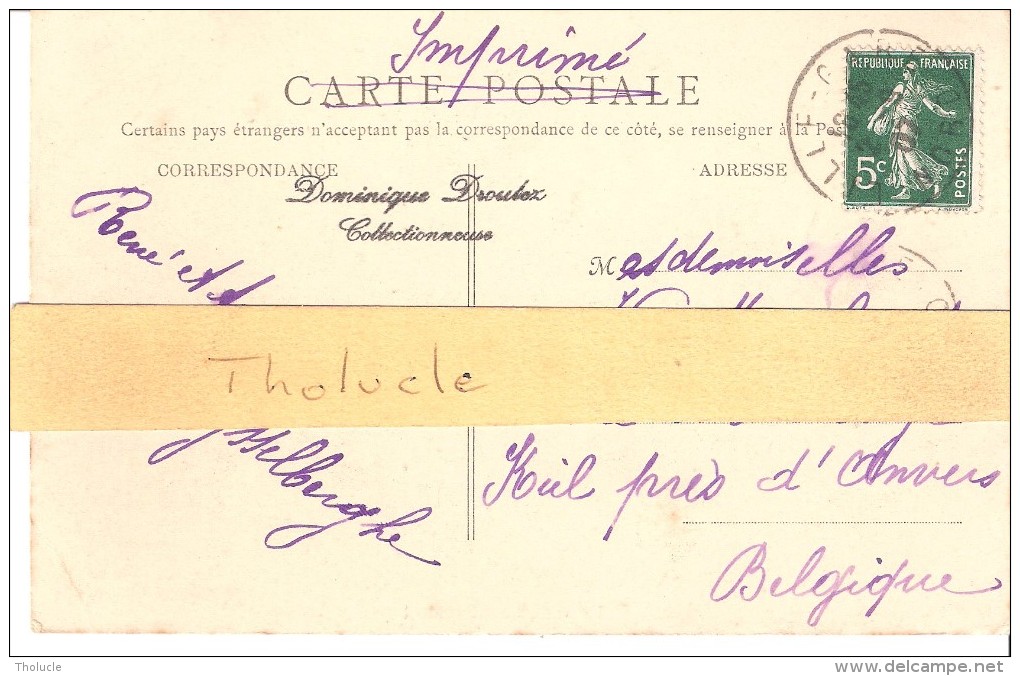 Imprimé
CARTE POSTALE
Certains pays étrangers n'acceptant pas la correspondance de ce côté, se renseigner à la Pos
CORRESPONDANCE
ADRESSE
RÉPUBLIQUE FRANÇAISE
5c
POSTES
Dominique Droulez
Collectionneuse
René et
Mesdemoiselles
Tholucle
sselberghe
Kiel près d'Anvers
Belgique
Tholucle
www.delcampe.net